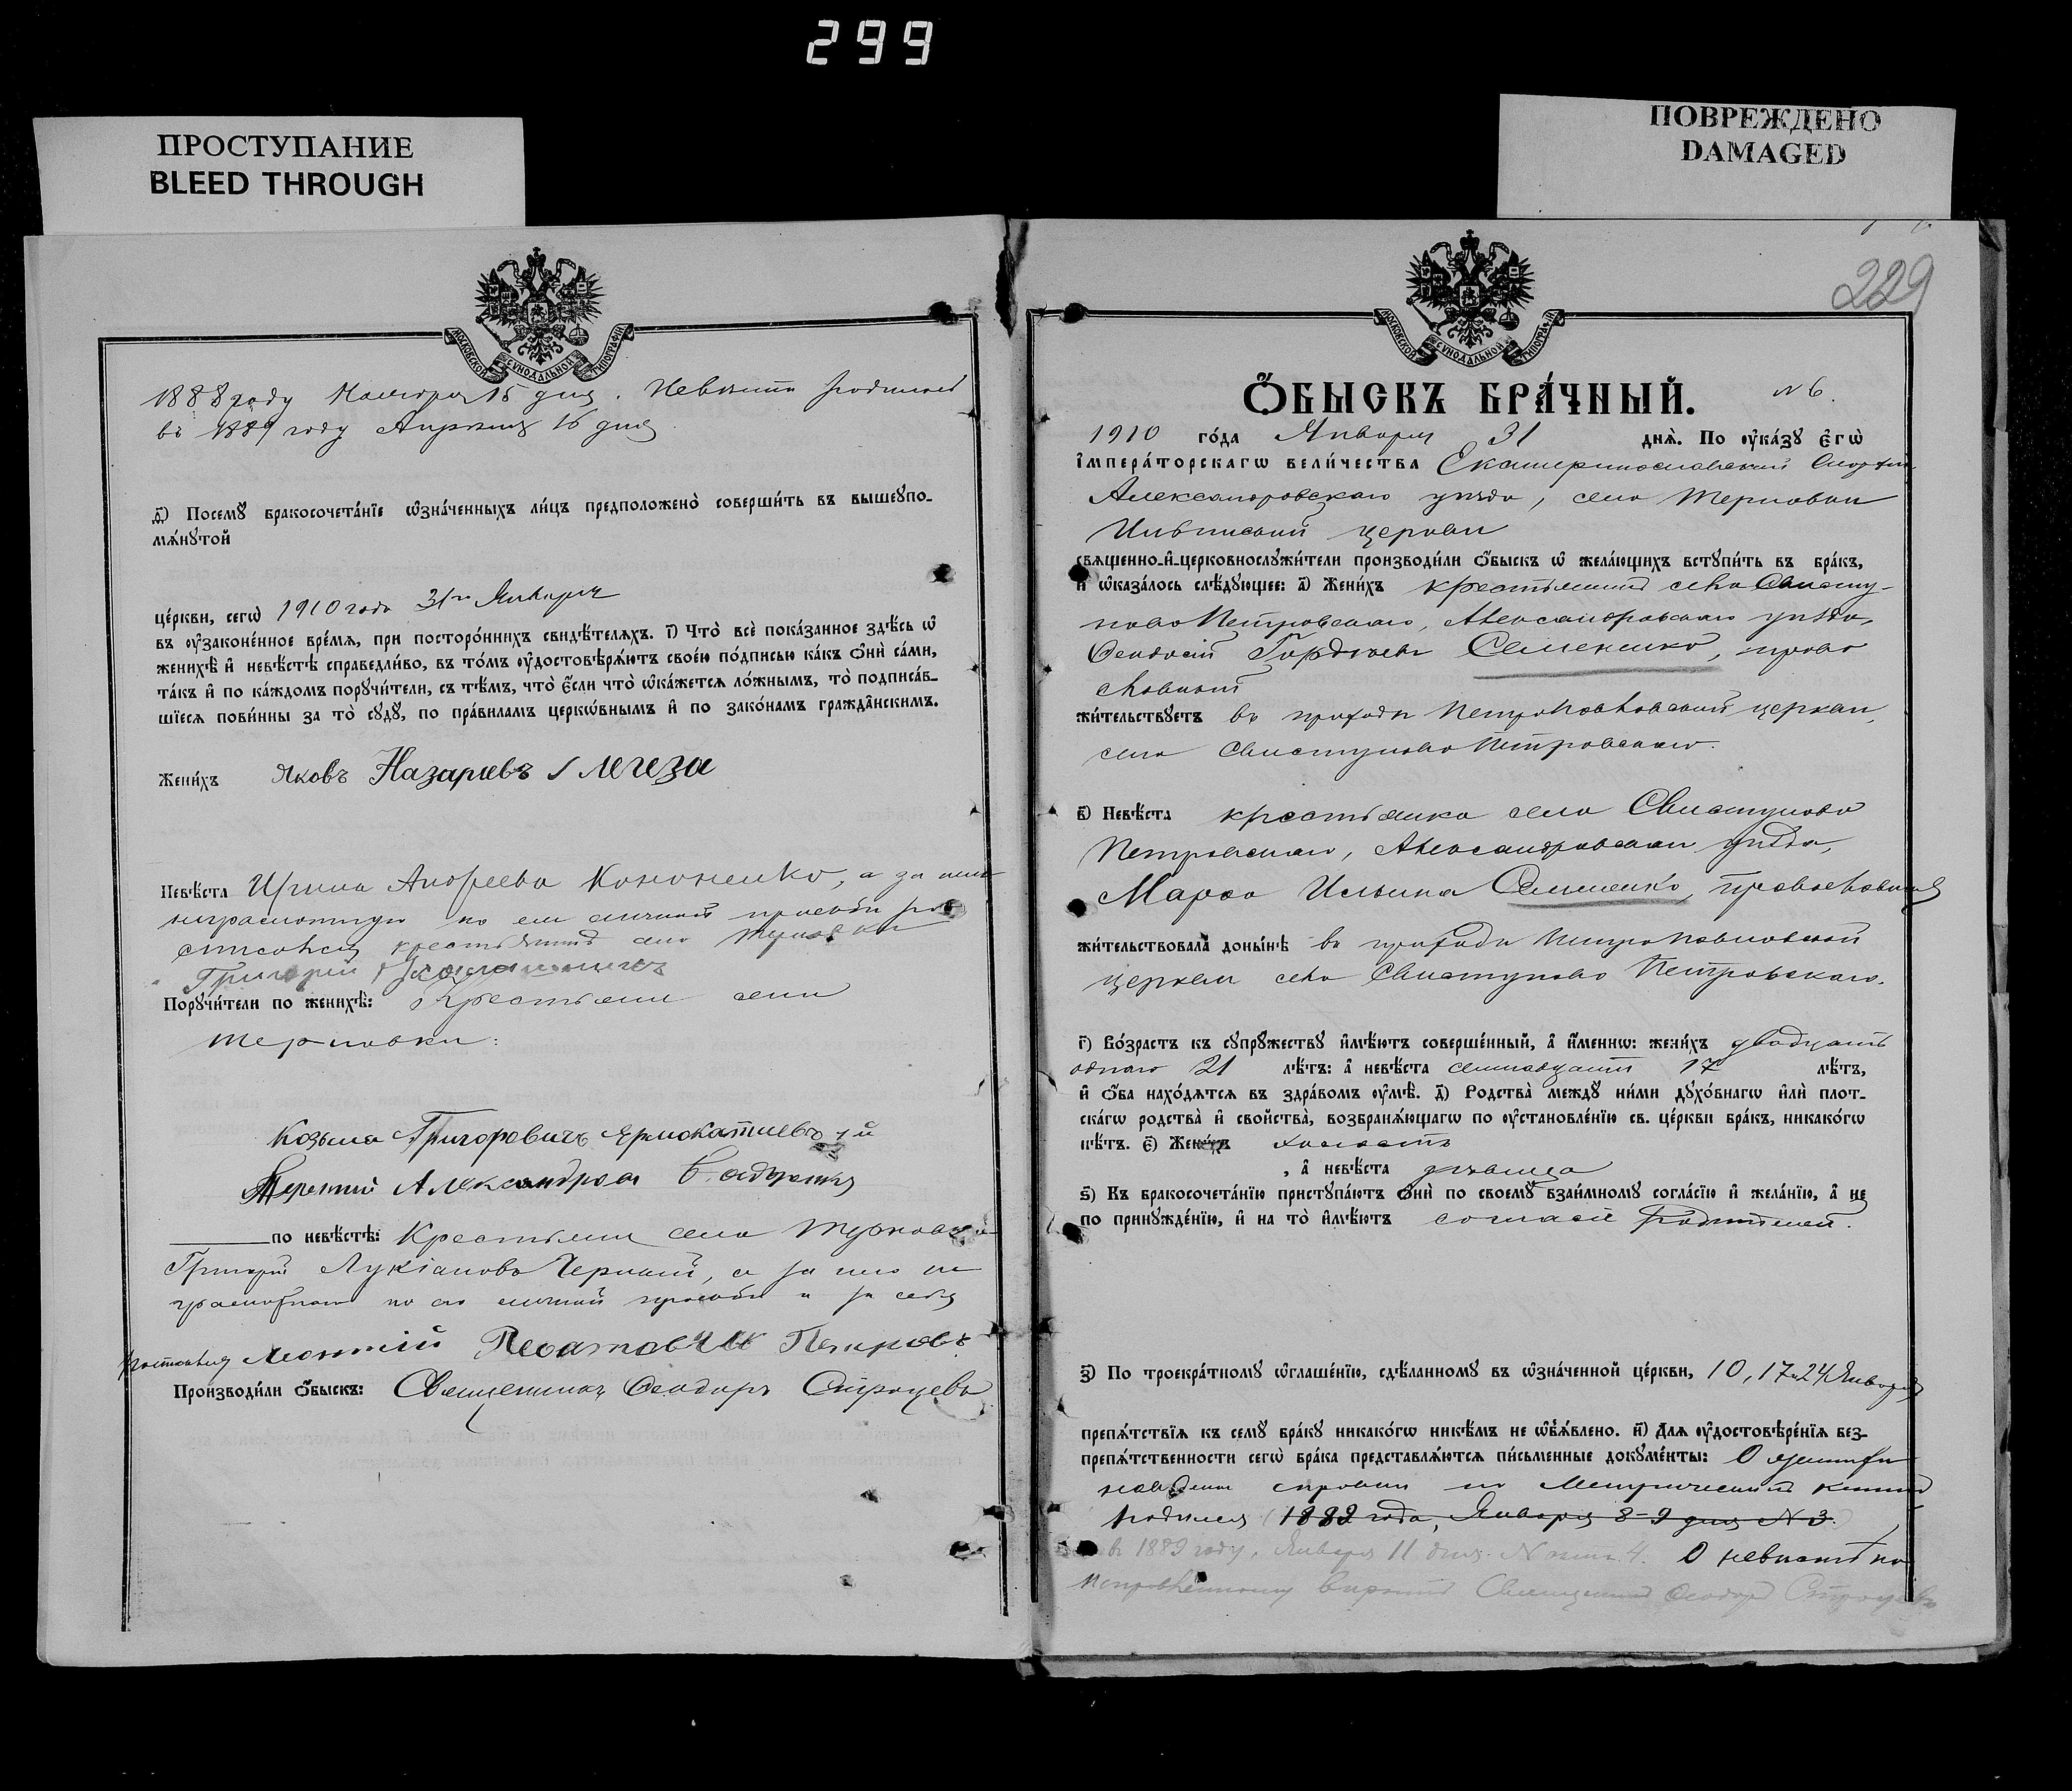 299
ПРОСТУПАНИЕ
BLEED THROUGH
ПОВРЕЖДЕНО
DAMAGED
МОСКОВСКОЙ СѴНОДАЛЬНОЙ ТИПОГРАФІИ
1888 году Ноября 15 дня. Невѣста родилась
въ 1889 году Апрѣля 16 дня
д҃) Посемꙋ бракосочета́нїе ѡ҆зна́ченныхъ ли́цъ предположено̀ соверши́ть въ вышеꙋпо-
мѧ́нꙋтой
це́ркви, сегѡ̀ 1910 года 31го Января
въ ᲂу҆законе́нное вре́мѧ, при посторо́ннихъ свидѣ́телѧхъ. і҃) Что̀ всѐ пока́занное здѣ́сь ѡ҆
женихѣ̀ и҆ невѣ́стѣ справедли́во, въ то́мъ ᲂу҆достовѣрѧ́ютъ свое́ю по́дписью ка́къ ѻ҆нѝ са́ми,
та́къ и҆ по ка́ждомъ порꙋчи́тели, съ тѣ́мъ, что̀ є҆́сли что̀ ѡ҆ка́жетсѧ ло́жнымъ, то̀ подписа́в-
шїесѧ пови́нны за то̀ сꙋдꙋ̀, по пра́виламъ церкѡ́внымъ и҆ по зако́намъ гражда́нскимъ.
Жени́хъ Яковъ Назарiевъ Легеза
Невѣ́ста Ирина Андреева Кононенко, а за нею
неграмотную по ея личной просьбѣ рос
писался крестьянинъ села Терновки
Григорій
Порꙋчи́тели по женихѣ̀: Крестьяне села
Терновки:
Козьма Григоровичъ Ермокатiевъ й
Терентий Александров
по невѣ́стѣ: Крестьяне села Терновки
Григорій Лукіановъ Черный, а за него не
грамотнаго по его личной просьбѣ и за себя
росписался Леонтій Петровъ
Производи́ли ѻ҆́быскъ: Священникъ Ѳеодоръ Строцевъ
229
Ѻ҆́БЫСКЪ БРА́ЧНЫЙ. N 6.
1910 го́да Января 31 днѧ̀. По ᲂу҆ка́зꙋ є҆гѡ̀
і҆мпера́торскагѡ вели́чества Екатеринославской Епархіи
Александровскаго уѣзда, села Терновки
церкви
свѧщенно-и҆-церковнослꙋжи́тели производи́ли ѻ҆́быскъ ѡ҆ жела́ющихъ встꙋпи́ть въ бра́къ,
и҆ ѡ҆каза́лось слѣ́дꙋющее: а҃) Жени́хъ крестьянинъ села Свисту-
ново Петровскаго, Александровскаго уѣзда,
Ѳеодосій Гордѣевъ Семененко, право
славный
жи́тельствꙋетъ въ приходѣ Петропавловской церкви,
села Свистуново Петровскаго.
в҃) Невѣ́ста крестьянка села Свистуново
Петровскаго, Александровскаго уѣзда,
Марѳа Ильина Семененко, православная
жи́тельствовала доны́нѣ въ приходѣ Петропавловской
церкви села Свистуново Петровскаго.
г҃) Во́зрастъ къ сꙋпрꙋ́жествꙋ и҆мѣ́ютъ соверше́нный, а҆ и҆́меннѡ: жени́хъ двадцать
одного 21 лѣ́тъ: а҆ невѣ́ста семнадцать 17 лѣ́тъ,
и҆ ѻ҆́ба нахо́дѧтсѧ въ здра́вомъ ᲂу҆мѣ̀. д҃) Родства̀ междꙋ̀ ни́ми дꙋхо́внагѡ и҆лѝ плот-
ска́гѡ родства̀ и҆ сво́йства, возбранѧ́ющагѡ по ᲂу҆становле́нїю св. це́ркви бра́къ, никако́гѡ
нѣ́тъ. є҃) Жени́хъ холостъ
, а҆ невѣ́ста дѣвица
ѕ҃) Къ бракосочета́нїю пристꙋпа́ютъ ѻ҆нѝ по своемꙋ̀ взаи́мномꙋ согла́сїю и҆ жела́нїю, а҆ не
по принꙋжде́нїю, и҆ на то̀ и҆мѣ́ютъ согласіе родителей.
з҃) По троекра́тномꙋ ѡ҆глаше́нїю, сдѣ́ланномꙋ въ ѡ҆зна́ченной це́ркви, 10, 17 и 24 Января
препѧ́тствїѧ къ семꙋ̀ бра́кꙋ никако́гѡ никѣ́мъ не ѡ҆б̾ѧ́влено. и҃) Длѧ ᲂу҆достовѣре́нїѧ без-
препѧ́тственности сегѡ̀ бра́ка представлѧ́ютсѧ пи́сьменные докꙋме́нты: О женихѣ
наведены справки по Метрической книгѣ
родился (1889 года, Января 8-9 дня N 3.)
въ 1889 году, Января 11 дня. N 4. О невѣстѣ по
исправленному вѣрить Священникъ Ѳеодоръ Строцевъ